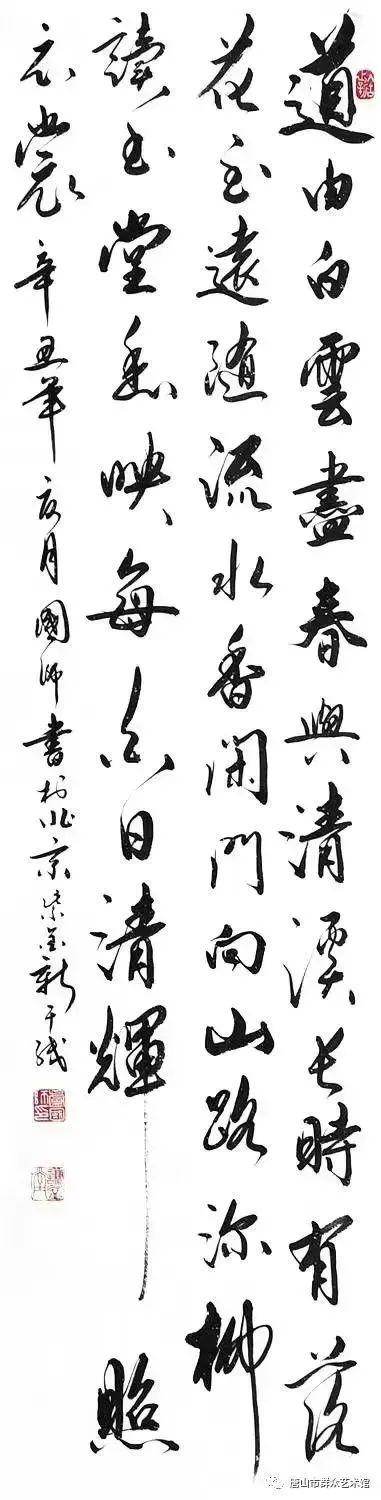 道由白雲盡春與清溪長時有落
花至遠隨流水香閑門向山路深柳
讀书堂幽映每白日清輝照
衣裳辛丑年夏月國師書於北京紫金新干线
唐山市群众艺术馆